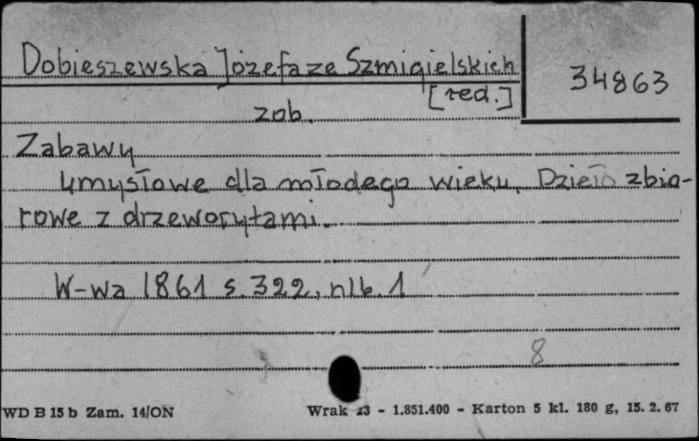 Dobieszewska Józefa ze Szmigielskich
34863
[red.]
zob.
Zabawy
umysłowe dla młodego wieku. Dzieło zbio-
rowe z drzeworytami.
W-wa 1861 s. 322, nlb 1
8
WD B 15 b Zam. 14/ON
Wrak 23 - 1.851.400 - Karton 5 kl. 180 g, 15. 2. 67